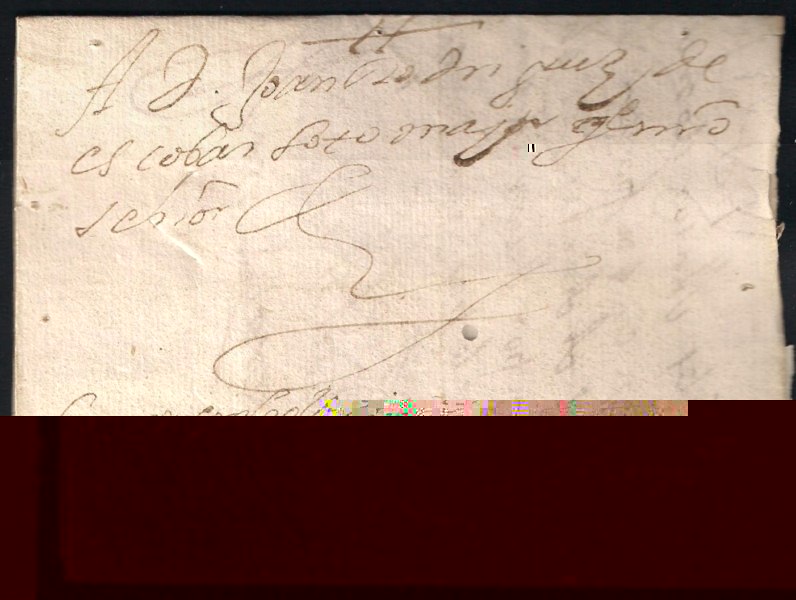 A D. Joan Rodriguez de
escobar soto maior gde mio
señor